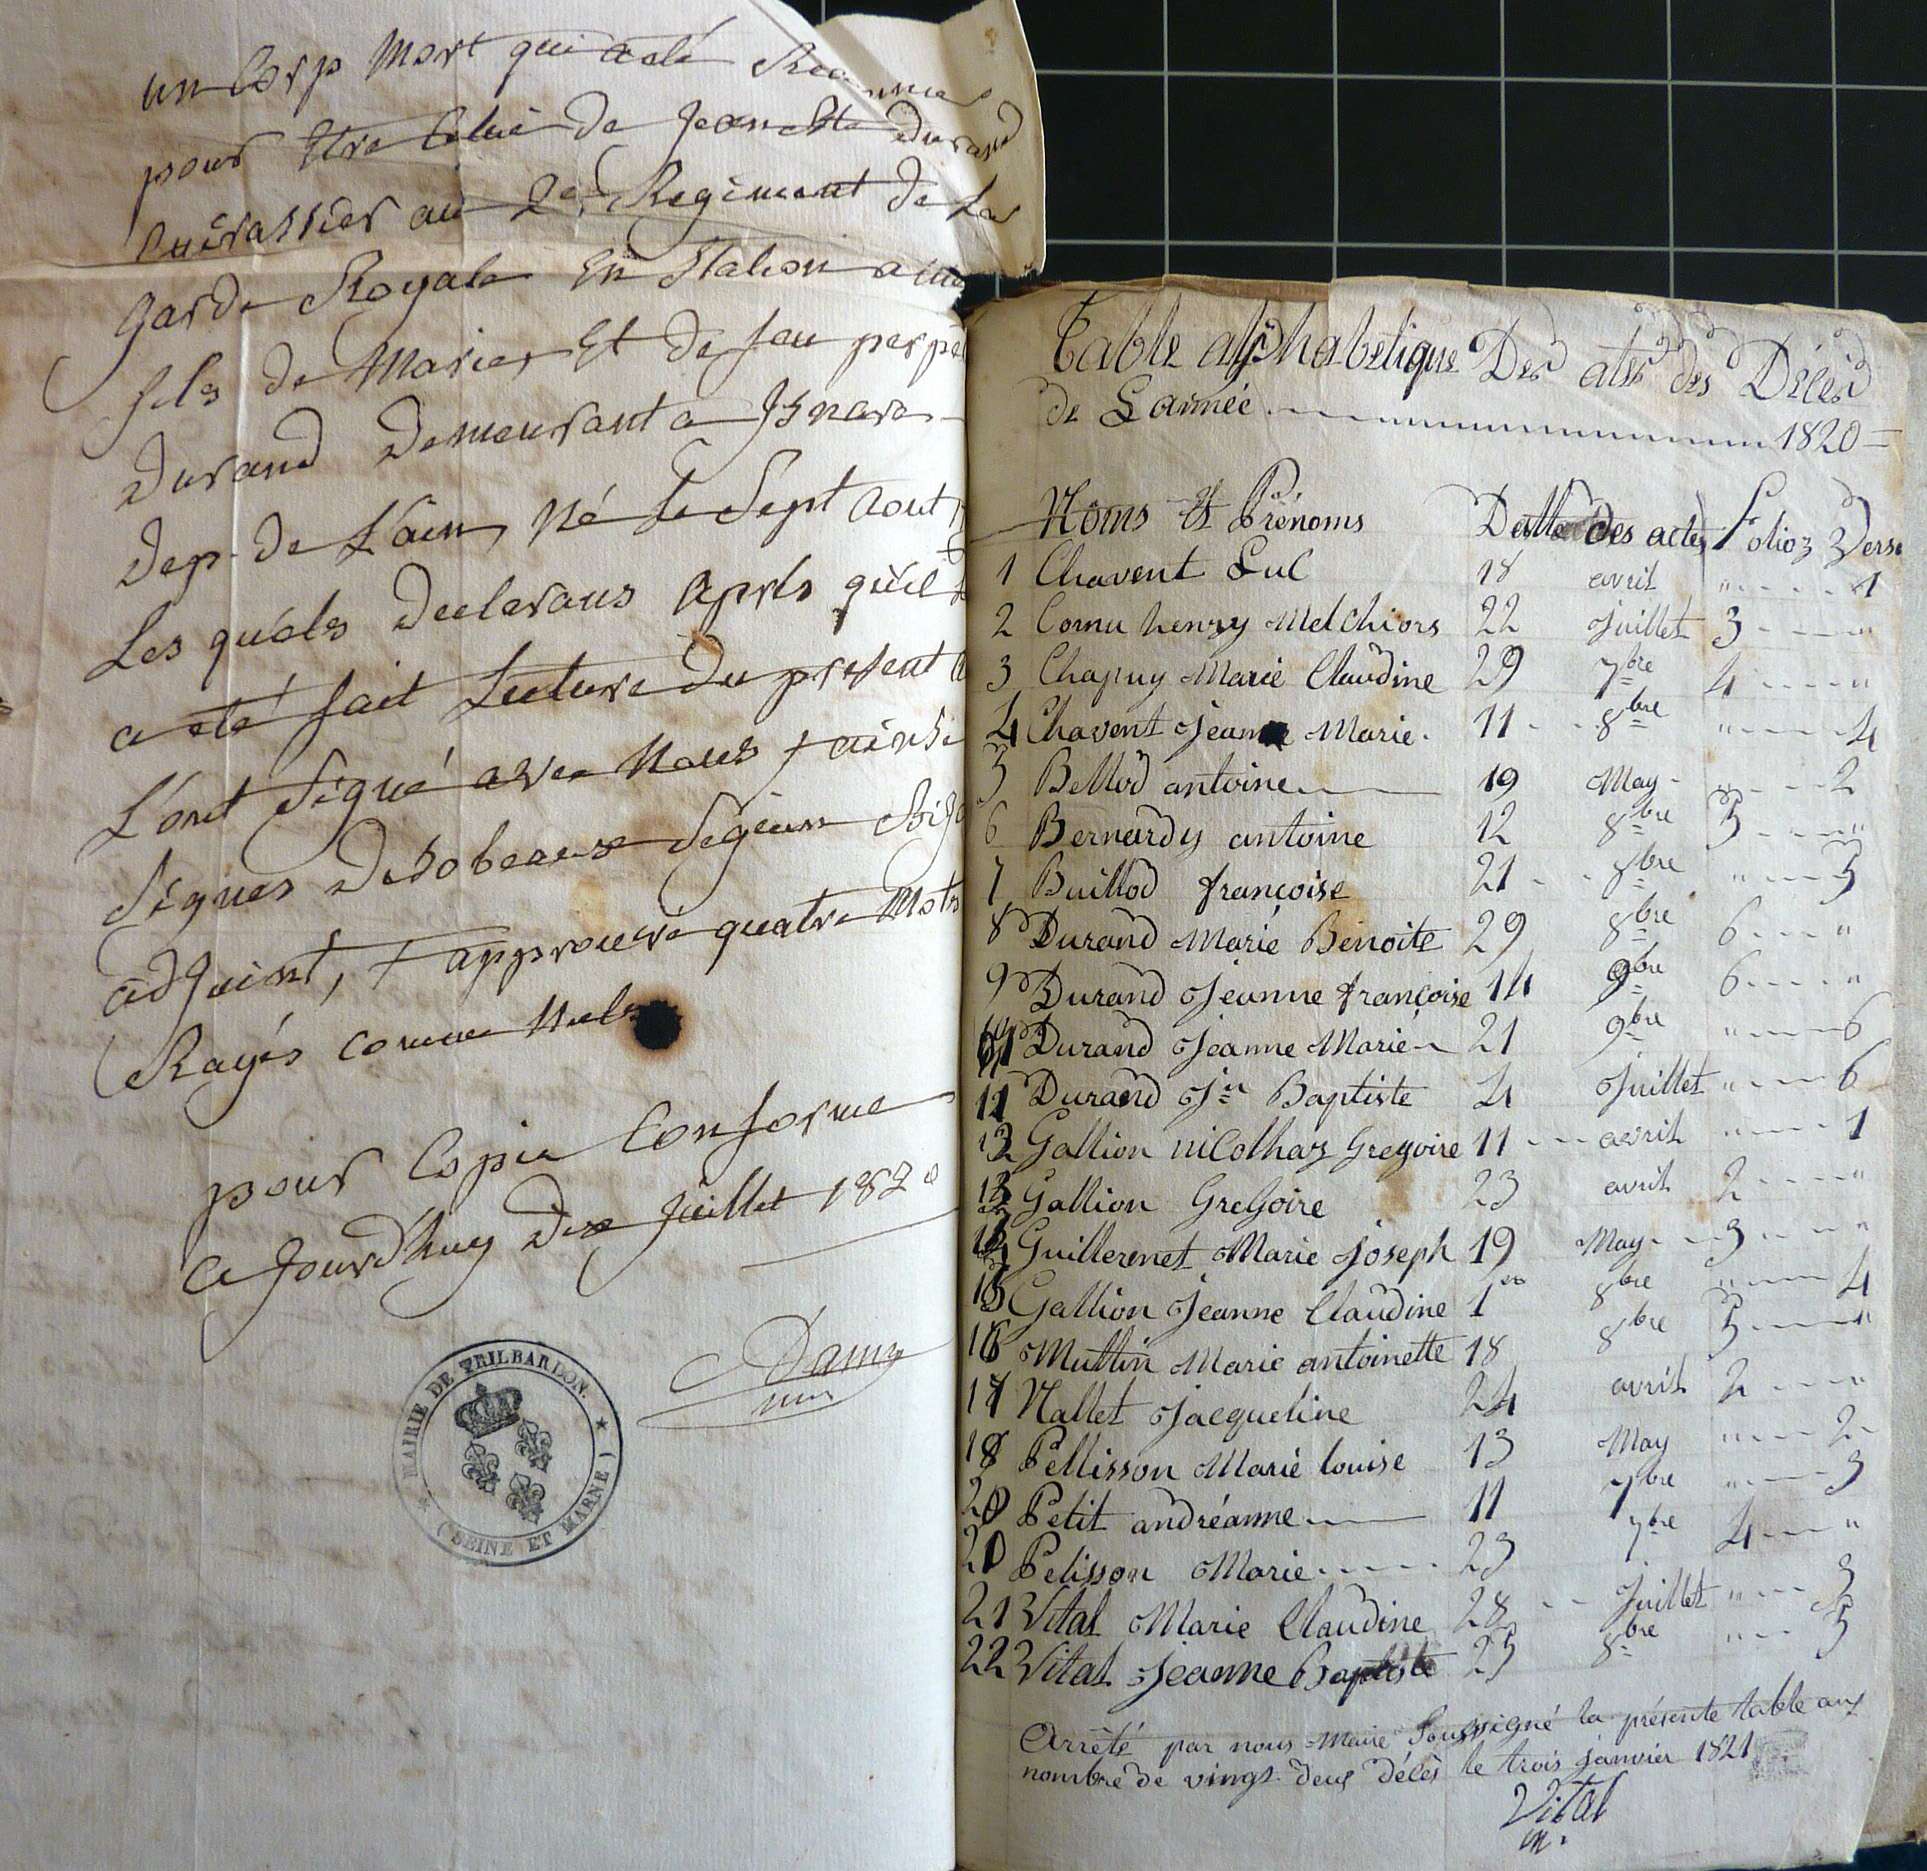 un Corp Mort qui a été Reconnues
pour Etre Celui de Jean Bte Durand
Cuirassier au 2e Regiment de La
garde Royale En Station a
fils de Marie, Et de feu
Durand Demeurant a
Dep. de L'ain, Né Le Sept aout
Les quels declarans après qu'il
a été fait Lecture du présent
L'ont Signé avec Nous + ainsi
Signés Desobeaux
adjoint, + approuvé quatre Mots
Rayés comme Nuls
pour Copie Conforme
Ce Jourd'huy Dix Juillet 1820
Damy
MAIRIE DE TRILBARDON.
(SEINE ET MARNE)
Table alphabetique Des ates des Décès
de L'année 1820
Noms Et Prénoms Datte des actes Folioz Verso
1 Chavent Luc 18 avril " 1
2 Cornu henry Melchiors 22 Juillet 3 "
3 Chapuy Marie Claudine 29 7bre 4 "
4 Chavent Jeanne Marie 11 8bre " 4
5 Bellod antoine 19 May " 2
6 Bernardy antoine 12 8bre 5 "
7 Buillod françoise 21 8bre " 5
8 Durand Marie Benoite 29 8bre 6 "
9 Durand Jeanne françoise 14 9bre 6 "
Durand Jeanne Marie 21 9bre " 6
11 Durand Jn Baptiste 4 Juillet " 6
12 Gallion nicolhas Gregoire 11 avril " 1
13 Gallion Gregoire 23 avril 2 "
14 Guillerenet Marie Joseph 19 May 3 "
15 Gallion Jeanne Claudine 1er 8bre " 4
16 Muttin Marie antoinette 18 8bre 5 "
17 Nallet Jacqueline 24 avril 2 "
18 Pellisson Marie louise 13 May " 2
Petit andréanne 11 7bre " 3
20 Pelisson Marie 23 7bre 4 "
21 Vital Marie Claudine 28 Juillet " 3
22 Vital Jeanne Baptiste 25 8bre " 5
Arrêté par nous Maire Soussigné la présente table au
nombre de vingt deux décès le trois janvier 1821
Vital
m.